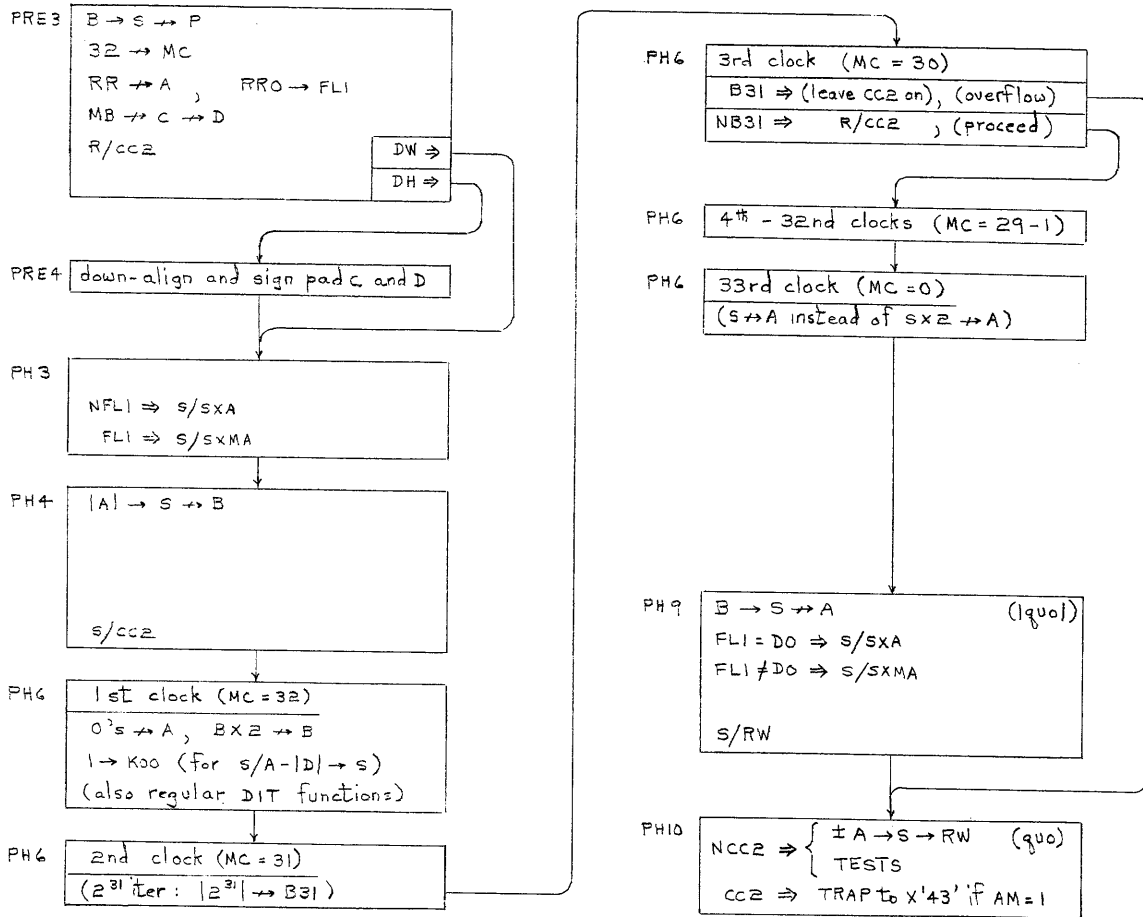 PRE3
B → S ↛ P
32 ↛ MC
RR ↛ A , RR0 → FL1
MB ↛ C ↛ D
R/CC2
DW ⇒
DH ⇒
PRE4
down-align and sign pad C and D
PH3
NFL1 ⇒ S/SXA
FL1 ⇒ S/SXMA
PH4
|A| → S ↛ B
S/CC2
PH6
1st clock (MC = 32)
0's ↛ A , B×2 ↛ B
1 → K00 (for S/A-|D| → S)
(also regular DIT functions)
PH6
2nd clock (MC = 31)
(2³¹ iter: |2³¹| ↛ B31)
PH6
3rd clock (MC = 30)
B31 ⇒ (leave CC2 on), (overflow)
NB31 ⇒ R/CC2 , (proceed)
PH6
4th - 32nd clocks (MC = 29-1)
PH6
33rd clock (MC = 0)
(S ↛ A instead of S×2 ↛ A)
PH9
B → S ↛ A (|quo|)
FL1 = D0 ⇒ S/SXA
FL1 ≠ D0 ⇒ S/SXMA
S/RW
PH10
NCC2 ⇒ { ± A → S → RW (quo)
TESTS
CC2 ⇒ TRAP to X'43' if AM = 1